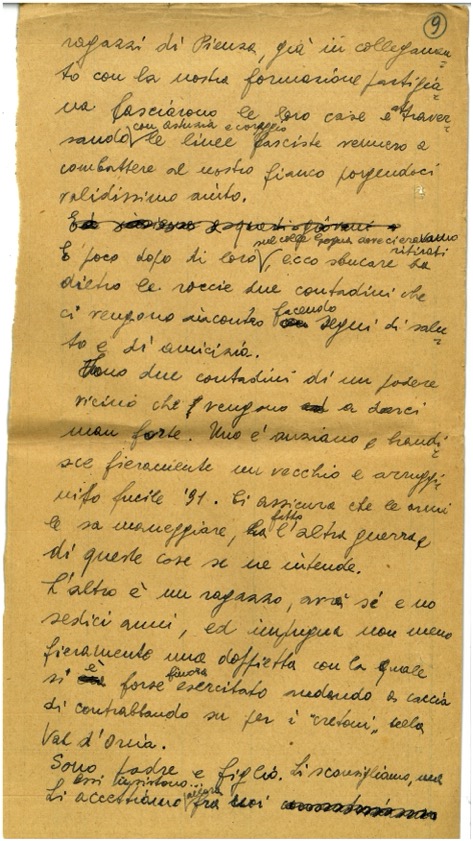 9
ragazzi di Pienza, già in colleganza-
to con la nostra formazione partigia-
na lasciarono le loro case e attraver-
sando con astuzia e coraggio le linee fasciste vennero a
combattere al nostro fianco porgendoci
validissimo aiuto.
E poco dopo di loro, sul colle sopra dove ci eravamo ritirati, ecco sbucare da
dietro le roccie due contadini che
ci vengono incontro facendo segni di salu-
to e di amicizia.
Sono due contadini di un podere
vicino che vengono a darci
man forte. Uno è anziano e brandi-
sce fieramente un vecchio e arruggi-
nito fucile '91. Ci assicura che le armi
le sa maneggiare, ha fatto l'altra guerra e
di queste cose se ne intende.
L'altro è un ragazzo, avrà sé e no
sedici anni, ed impugna non meno
fieramente una doppietta con la quale
si è forse finora esercitato andando a caccia
di contrabbando su per i "cretoni" della
Val d'Orcia.
Sono padre e figlio. Li sconsigliamo, ma
essi insistono...
Li accettiamo allora fra noi